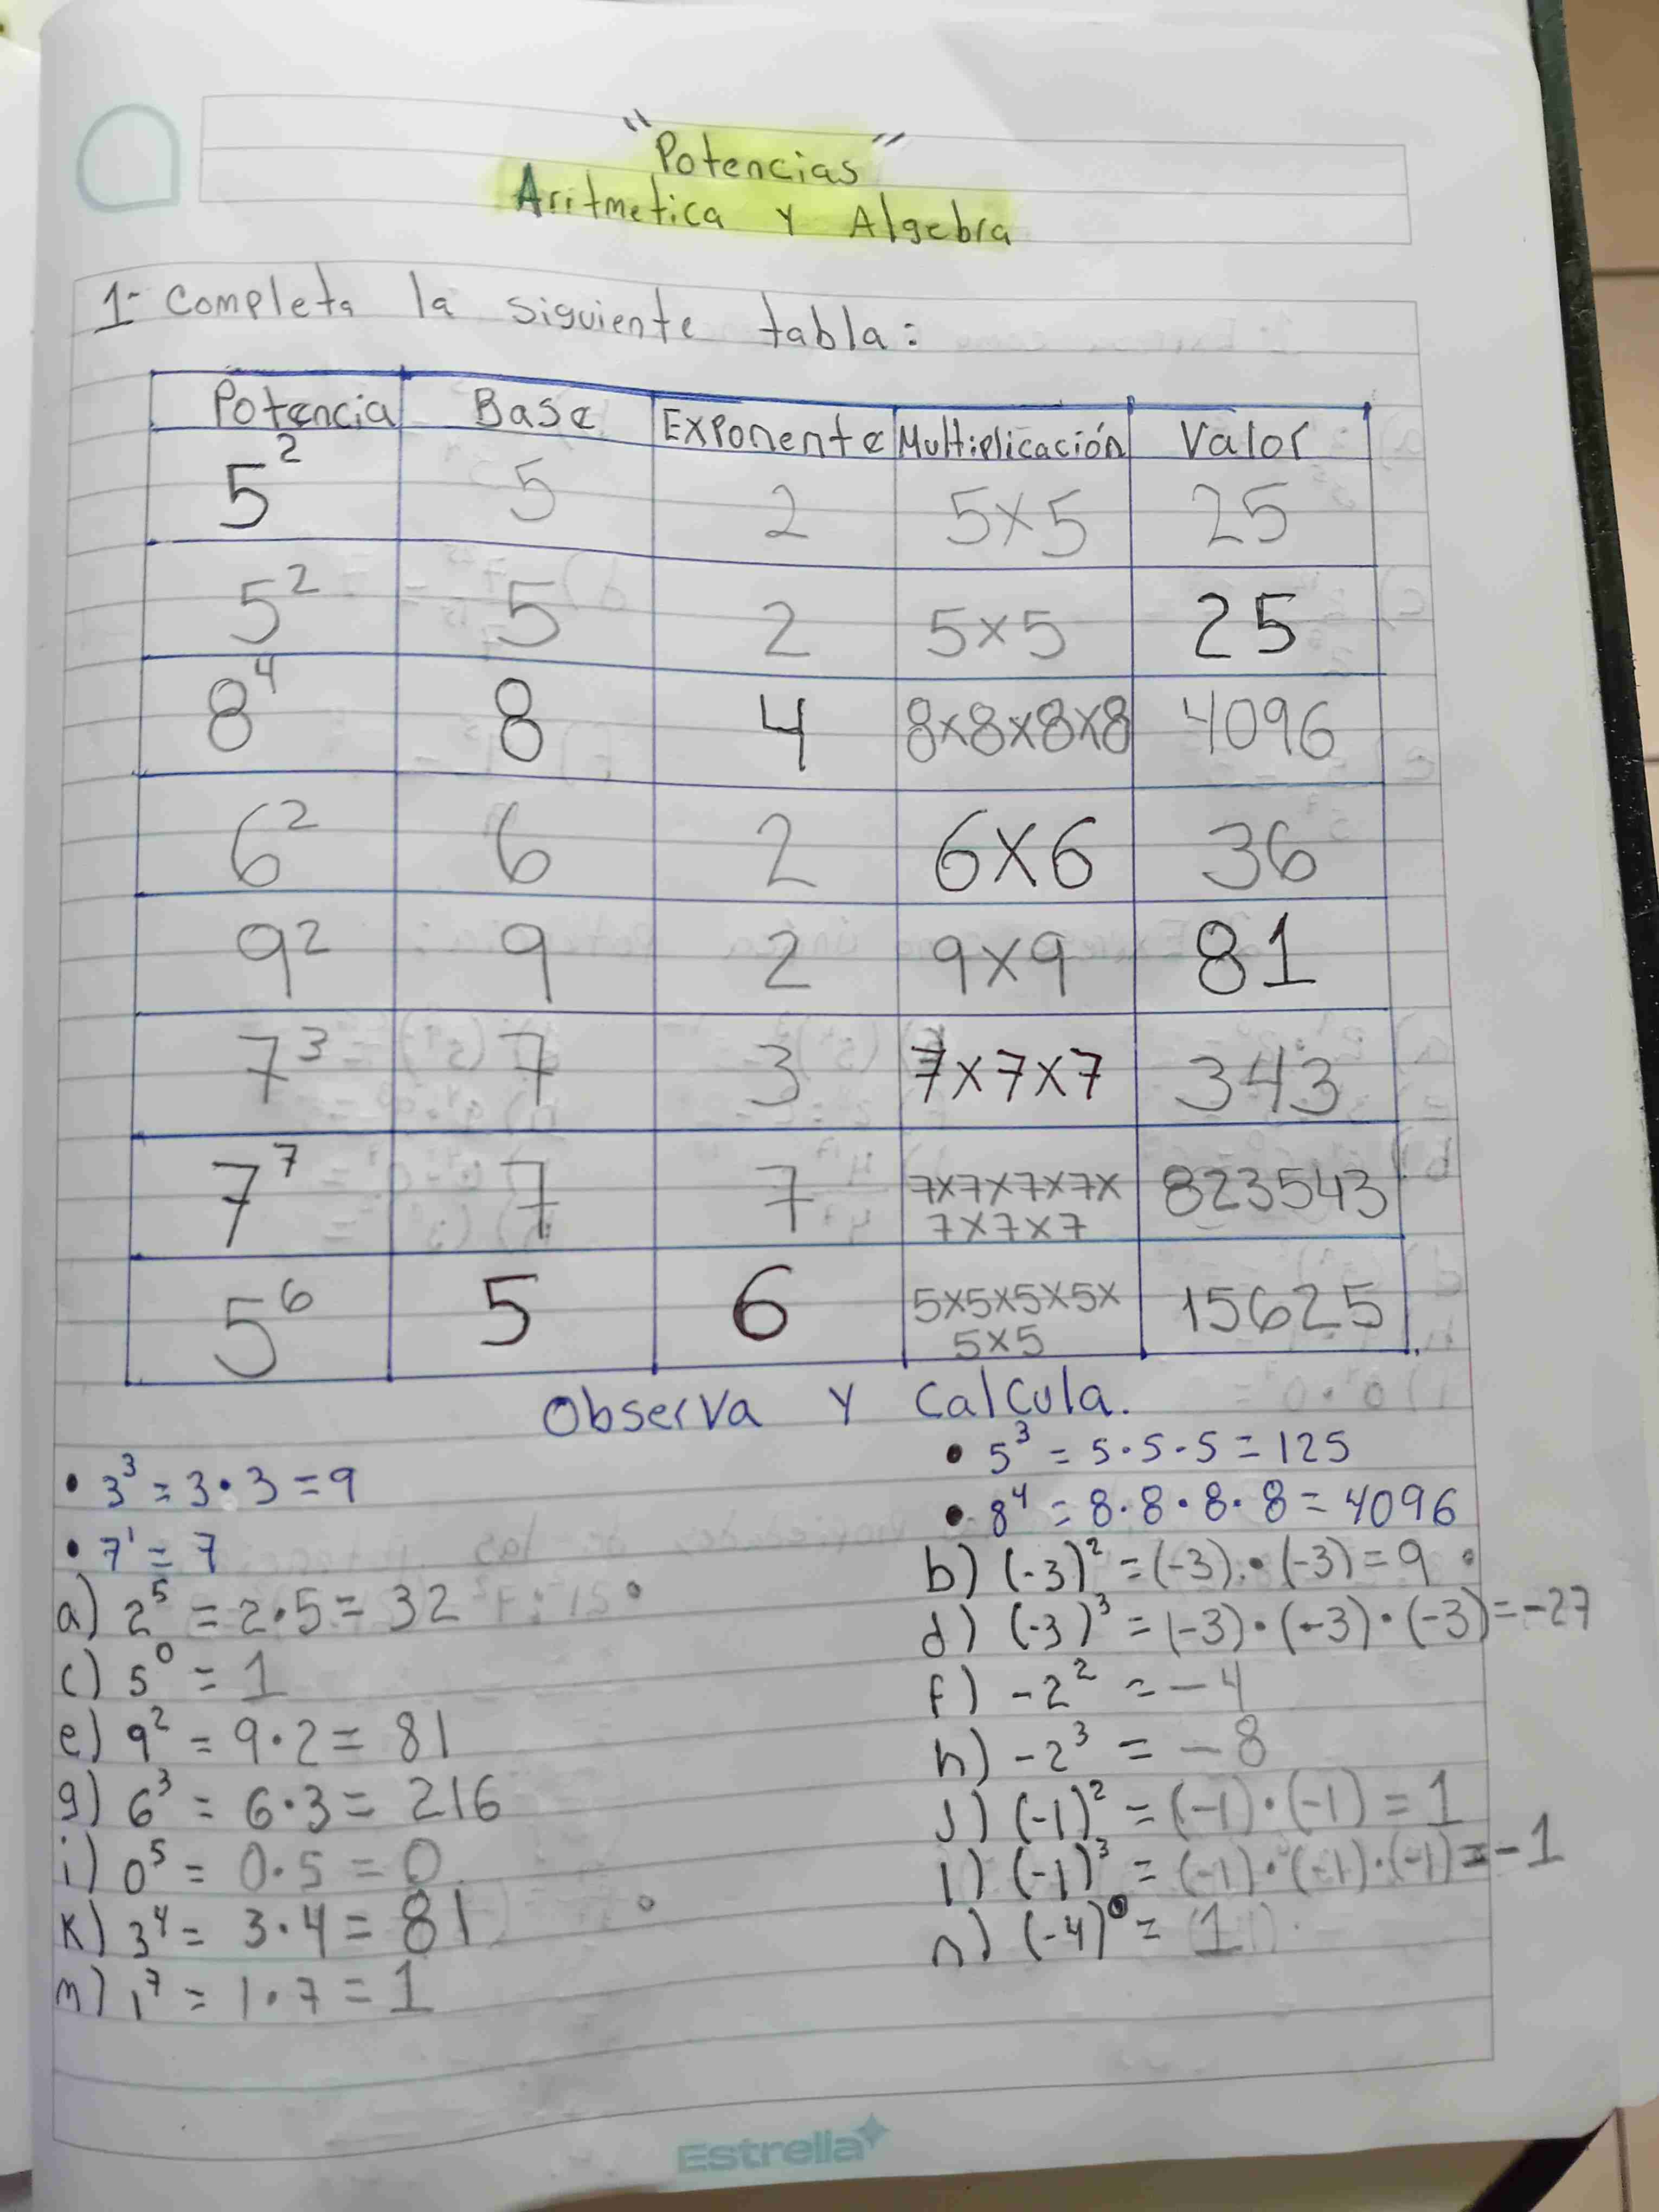 "Potencias"
Aritmetica y Algebra
1- Completa la siguiente tabla:
Potencia Base Exponente Multiplicación Valor
5² 5 2 5×5 25
5² 5 2 5×5 25
8⁴ 8 4 8×8×8×8 4096
6² 6 2 6×6 36
9² 9 2 9×9 81
7³ 7 3 7×7×7 343
7⁷ 7 7 7×7×7×7× 823543
7×7×7
5⁶ 5 6 5×5×5×5× 15625
5×5
Observa y Calcula.
• 3³ = 3·3 = 9
• 7¹ = 7
a) 2⁵ = 2·5 = 32
c) 5⁰ = 1
e) 9² = 9·2 = 81
g) 6³ = 6·3 = 216
i) 0⁵ = 0·5 = 0
k) 3⁴ = 3·4 = 81
m) 1⁷ = 1·7 = 1
• 5³ = 5·5·5 = 125
• 8⁴ = 8·8·8·8 = 4096
b) (-3)² = (-3)·(-3) = 9
d) (-3)³ = (-3)·(-3)·(-3) = -27
f) -2² = -4
h) -2³ = -8
j) (-1)² = (-1)·(-1) = 1
l) (-1)³ = (-1)·(-1)·(-1) = -1
n) (-4)⁰ = 1
Estrella